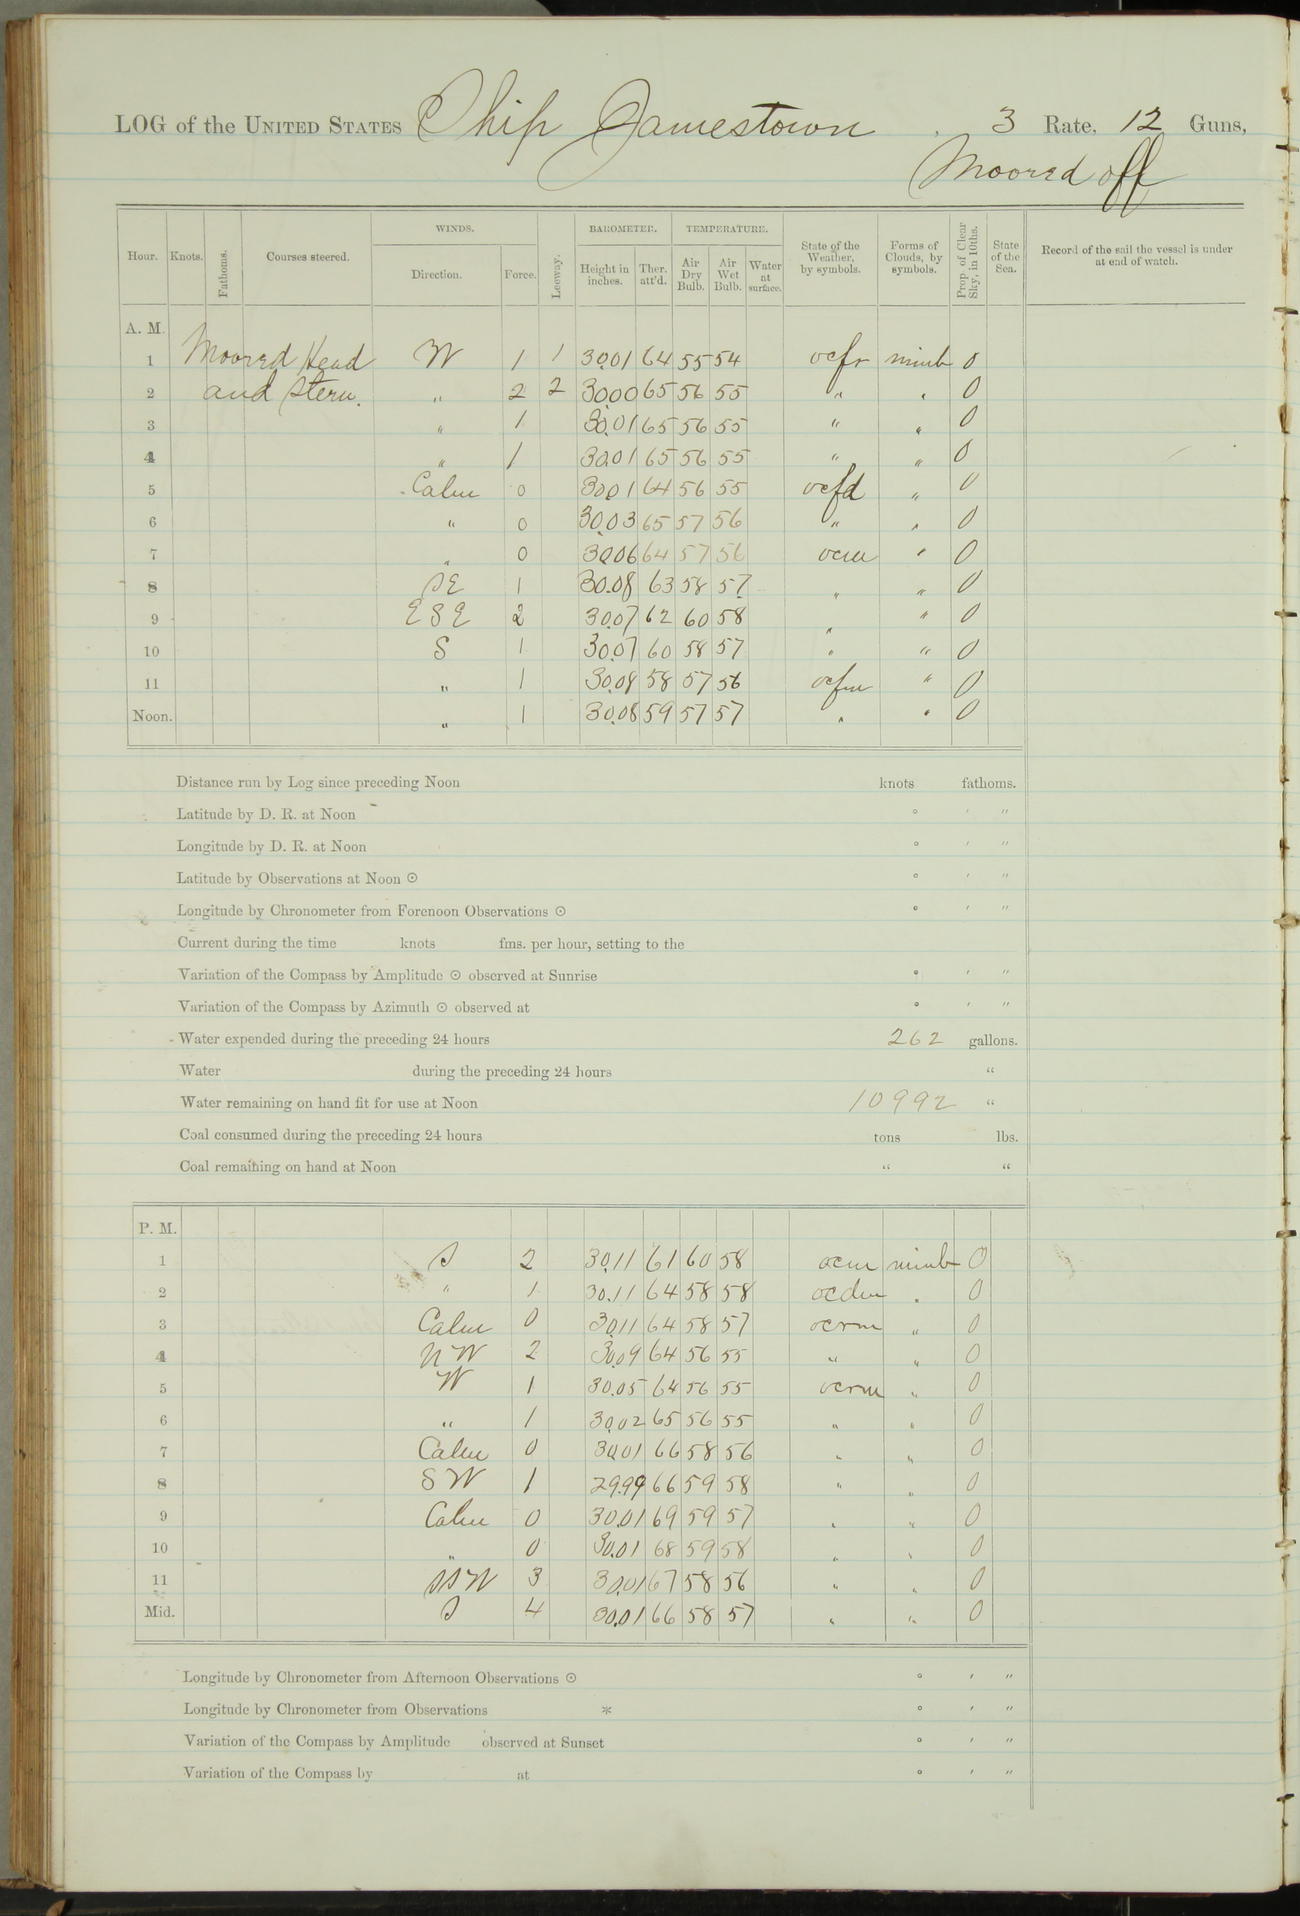 LOG of the UNITED STATES Ship Jamestown, 3 Rate, 12 Guns,
Moored off
Hour. Knots. Fathoms. Courses steered. WINDS. Direction. Force. Leeway. BAROMETER. Height in inches. Ther. att'd. TEMPERATURE. Air Dry Bulb. Air Wet Bulb. Water at surface. State of the Weather, by symbols. Forms of Clouds, by symbols. Prop. of Clear Sky, in 10ths. State of the Sea. Record of the sail the vessel is under at end of watch.
A. M.
1 Moored Head W 1 1 30.01 64 55 54 ocfr nimb 0
2 and Stern. " 2 2 30.00 65 56 55 " " 0
3 " 1 30.01 65 56 55 " " 0
4 " 1 30.01 65 56 55 " " 0
5 Calm 0 30.01 64 56 55 ocfd " 0
6 " 0 30.03 65 57 56 " " 0
7 " 0 30.06 64 57 56 ocm " 0
8 SE 1 30.08 63 58 57 " " 0
9 ESE 2 30.07 62 60 58 " " 0
10 S 1 30.07 60 58 57 " " 0
11 " 1 30.08 58 57 56 ocfm " 0
Noon. " 1 30.08 59 57 57 " " 0
Distance run by Log since preceding Noon knots fathoms.
Latitude by D. R. at Noon ° ′ ″
Longitude by D. R. at Noon ° ′ ″
Latitude by Observations at Noon ☉ ° ′ ″
Longitude by Chronometer from Forenoon Observations ☉ ° ′ ″
Current during the time knots fms. per hour, setting to the
Variation of the Compass by Amplitude ☉ observed at Sunrise ° ′ ″
Variation of the Compass by Azimuth ☉ observed at ° ′ ″
Water expended during the preceding 24 hours 262 gallons.
Water during the preceding 24 hours "
Water remaining on hand fit for use at Noon 10992 "
Coal consumed during the preceding 24 hours tons lbs.
Coal remaining on hand at Noon " "
P. M.
1 S 2 30.11 61 60 58 ocm nimb 0
2 " 1 30.11 64 58 58 ocdm " 0
3 Calm 0 30.11 64 58 57 ocrm " 0
4 NW 2 30.09 64 56 55 " " 0
5 W 1 30.05 64 56 55 ocrm " 0
6 " 1 30.02 65 56 55 " " 0
7 Calm 0 30.01 66 58 56 " " 0
8 SW 1 29.99 66 59 58 " " 0
9 Calm 0 30.01 69 59 57 " " 0
10 " 0 30.01 68 59 58 " " 0
11 SSW 3 30.01 67 58 56 " " 0
Mid. S 4 30.01 66 58 57 " " 0
Longitude by Chronometer from Afternoon Observations ☉ ° ′ ″
Longitude by Chronometer from Observations * ° ′ ″
Variation of the Compass by Amplitude observed at Sunset ° ′ ″
Variation of the Compass by at ° ′ ″